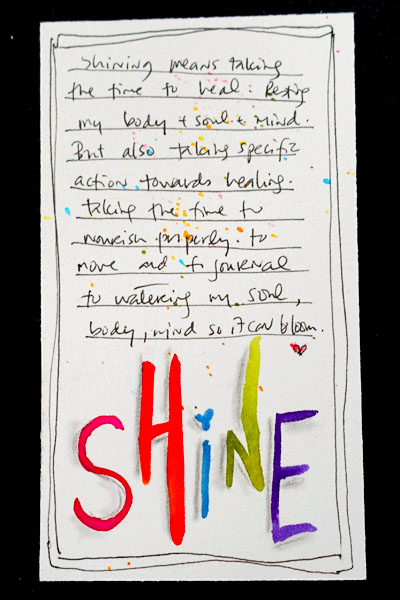 Shining means taking
the time to heal. Resting
my body + soul + mind.
But also taking specific
action towards healing.
taking the time to
nourish properly. to
move and to journal
to watering my soul,
body, mind so it can bloom.
SHiNE